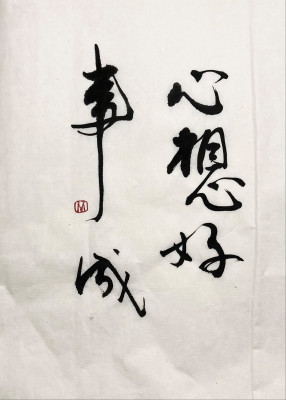 心想好
事成